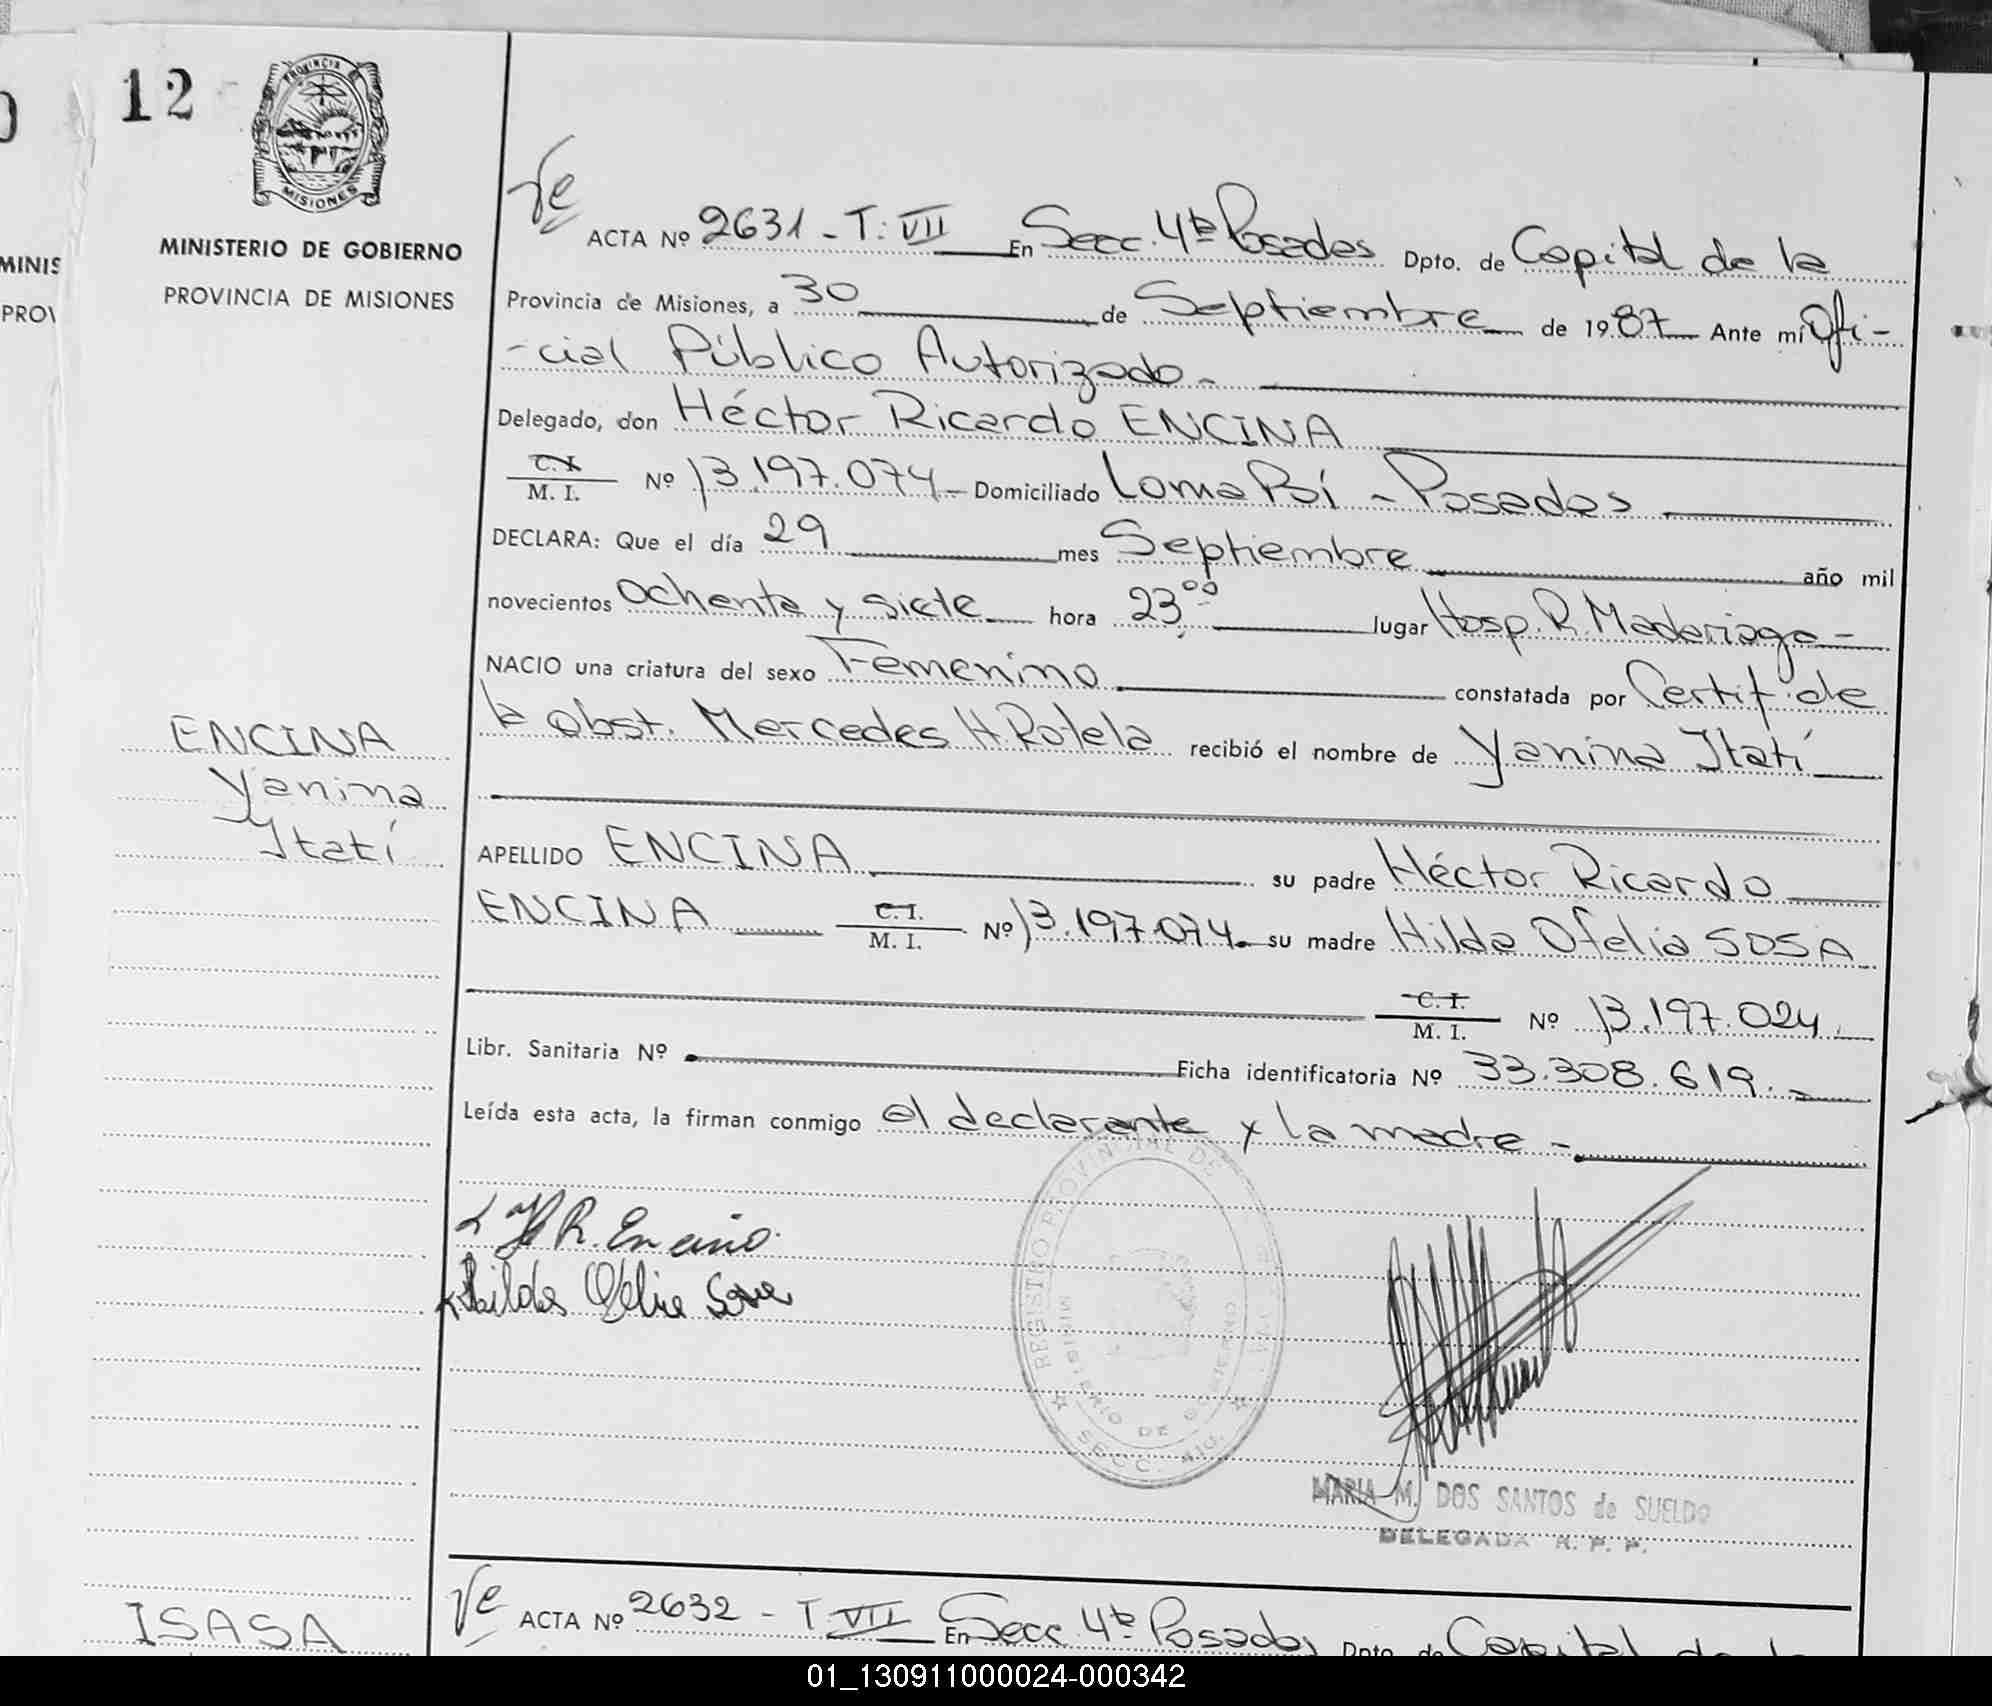 12
PROVINCIA DE
MISIONES
MINISTERIO DE GOBIERNO
PROVINCIA DE MISIONES
MINIS
PROV
Ve
ACTA Nº 2631 - T: VII En Secc. 4ta Posadas Dpto. de Capital de la
Provincia de Misiones, a 30 de Septiembre de 1987 Ante mí Ofi-
-cial Público Autorizado -
Delegado, don Héctor Ricardo ENCINA
C. I. / M. I. Nº 13.197.074 - Domiciliado Loma Poí - Posadas
DECLARA: Que el día 29 mes Septiembre año mil
novecientos ochenta y siete hora 23,00 lugar Hosp. R. Madariaga -
NACIO una criatura del sexo Femenino constatada por Certif. de
la obst. Mercedes H. Rotela recibió el nombre de Yanina Itatí
ENCINA
Yanina
Itatí
APELLIDO ENCINA su padre Héctor Ricardo
ENCINA C. I. / M. I. Nº 13.197.074. su madre Hilda Ofelia SOSA
C. I. / M. I. Nº 13.197.024.
Libr. Sanitaria Nº Ficha identificatoria Nº 33.308.619. -
Leída esta acta, la firman conmigo el declarante y la madre -
H R. Encina
Hilda Ofelia Sosa
REGISTRO PROVINCIAL DE
MINISTERIO DE GOBIERNO
SECC. 4TA.
MARIA M. DOS SANTOS de SUELDO
DELEGADA R. P. P.
Ve
ACTA Nº 2632 - T VII En Secc. 4ta Posadas Dpto. de Capital de la
ISASA
01_130911000024-000342